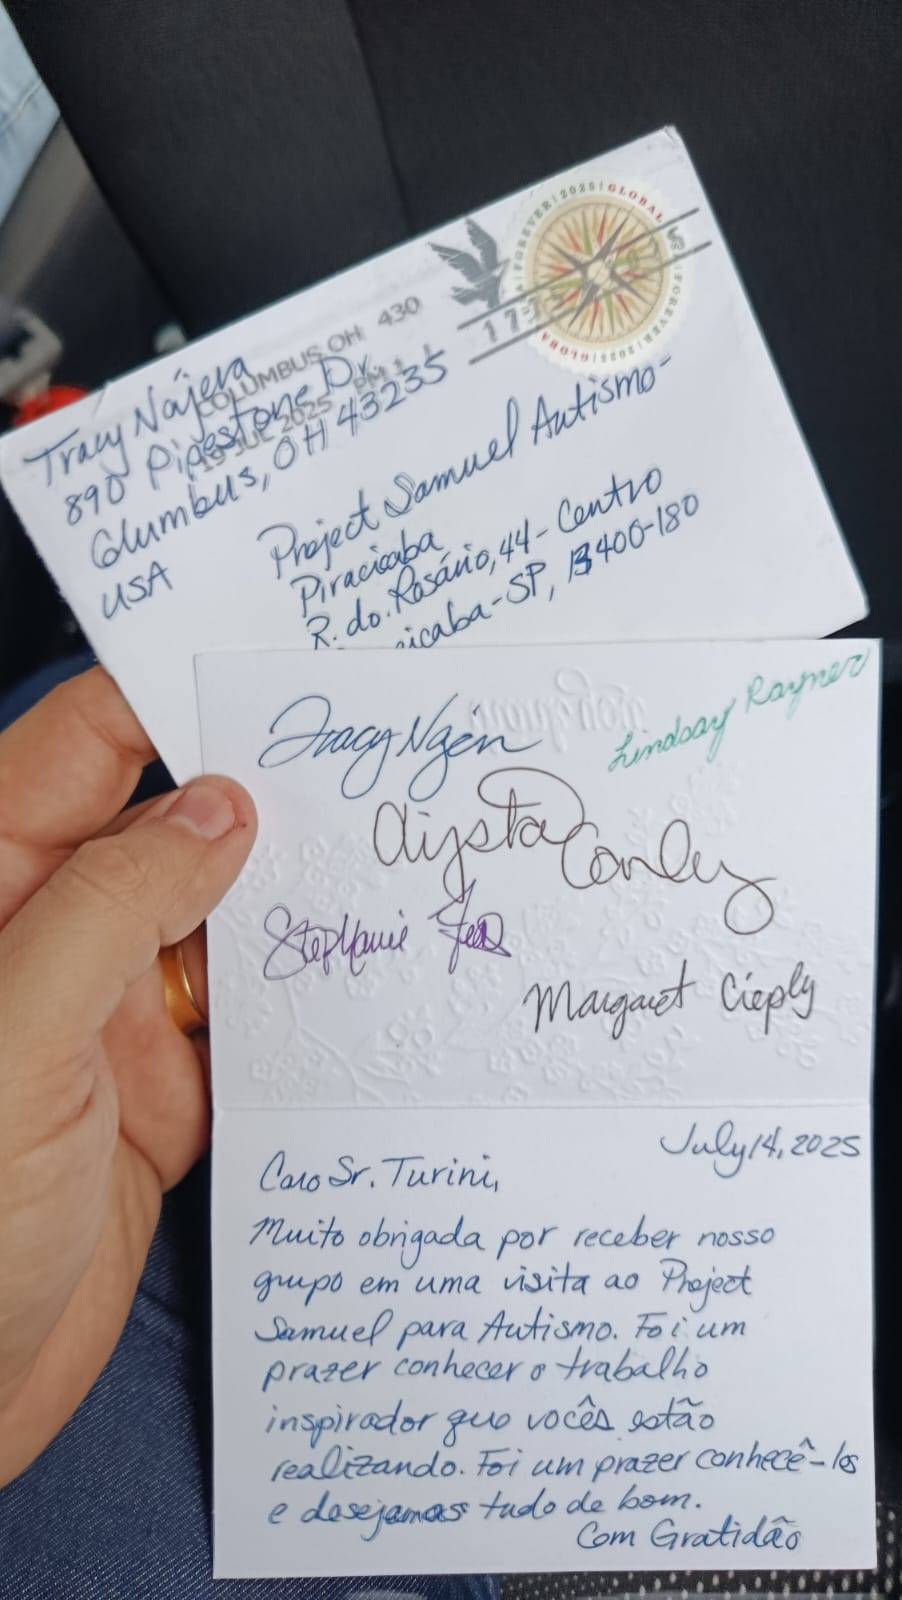 COLUMBUS OH 430
19 JUL 2025 PM 1 L
USA FOREVER 2025 GLOBAL
FOREVER 2025 GLOBAL
1775
Tracy Nájera
890 Pipestone Dr
Columbus, OH 43235
USA
Project Samuel Autismo-
Piracicaba
R. do. Rosário, 44 - Centro
icaba-SP, 13400-180
Lindsay Rayner
Stephanie
Margaret Cieply
July 14, 2025
Caro Sr. Turini,
Muito obrigada por receber nosso
grupo em uma visita ao Project
Samuel para Autismo. Foi um
prazer conhecer o trabalho
inspirador que vocês estão
realizando. Foi um prazer conhecê-los
e desejamos tudo de bom.
Com Gratidão